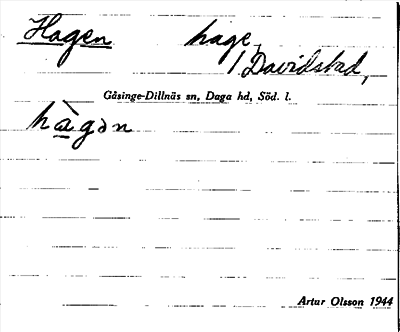 Hagen hage,
/ Davidstad,
Gåsinge-Dillnäs sn, Daga hd, Söd. l.
hàgən
Artur Olsson 1944